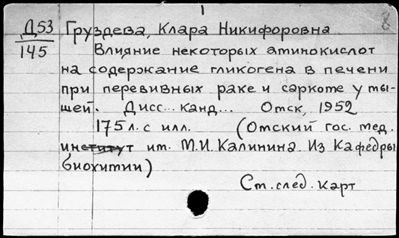 1
Д53 Груздева, Клара Никифоровна 8
145 Влияние некоторых аминокислот
на содержание гликогена в печени
при перевивных раке и саркоме у мы-
шей. Дисс... канд... Омск, 1952
175 л. с илл. (Омский гос. мед.
институт им. М.И. Калинина. Из Кафедры
биохимии)
См. след. карт